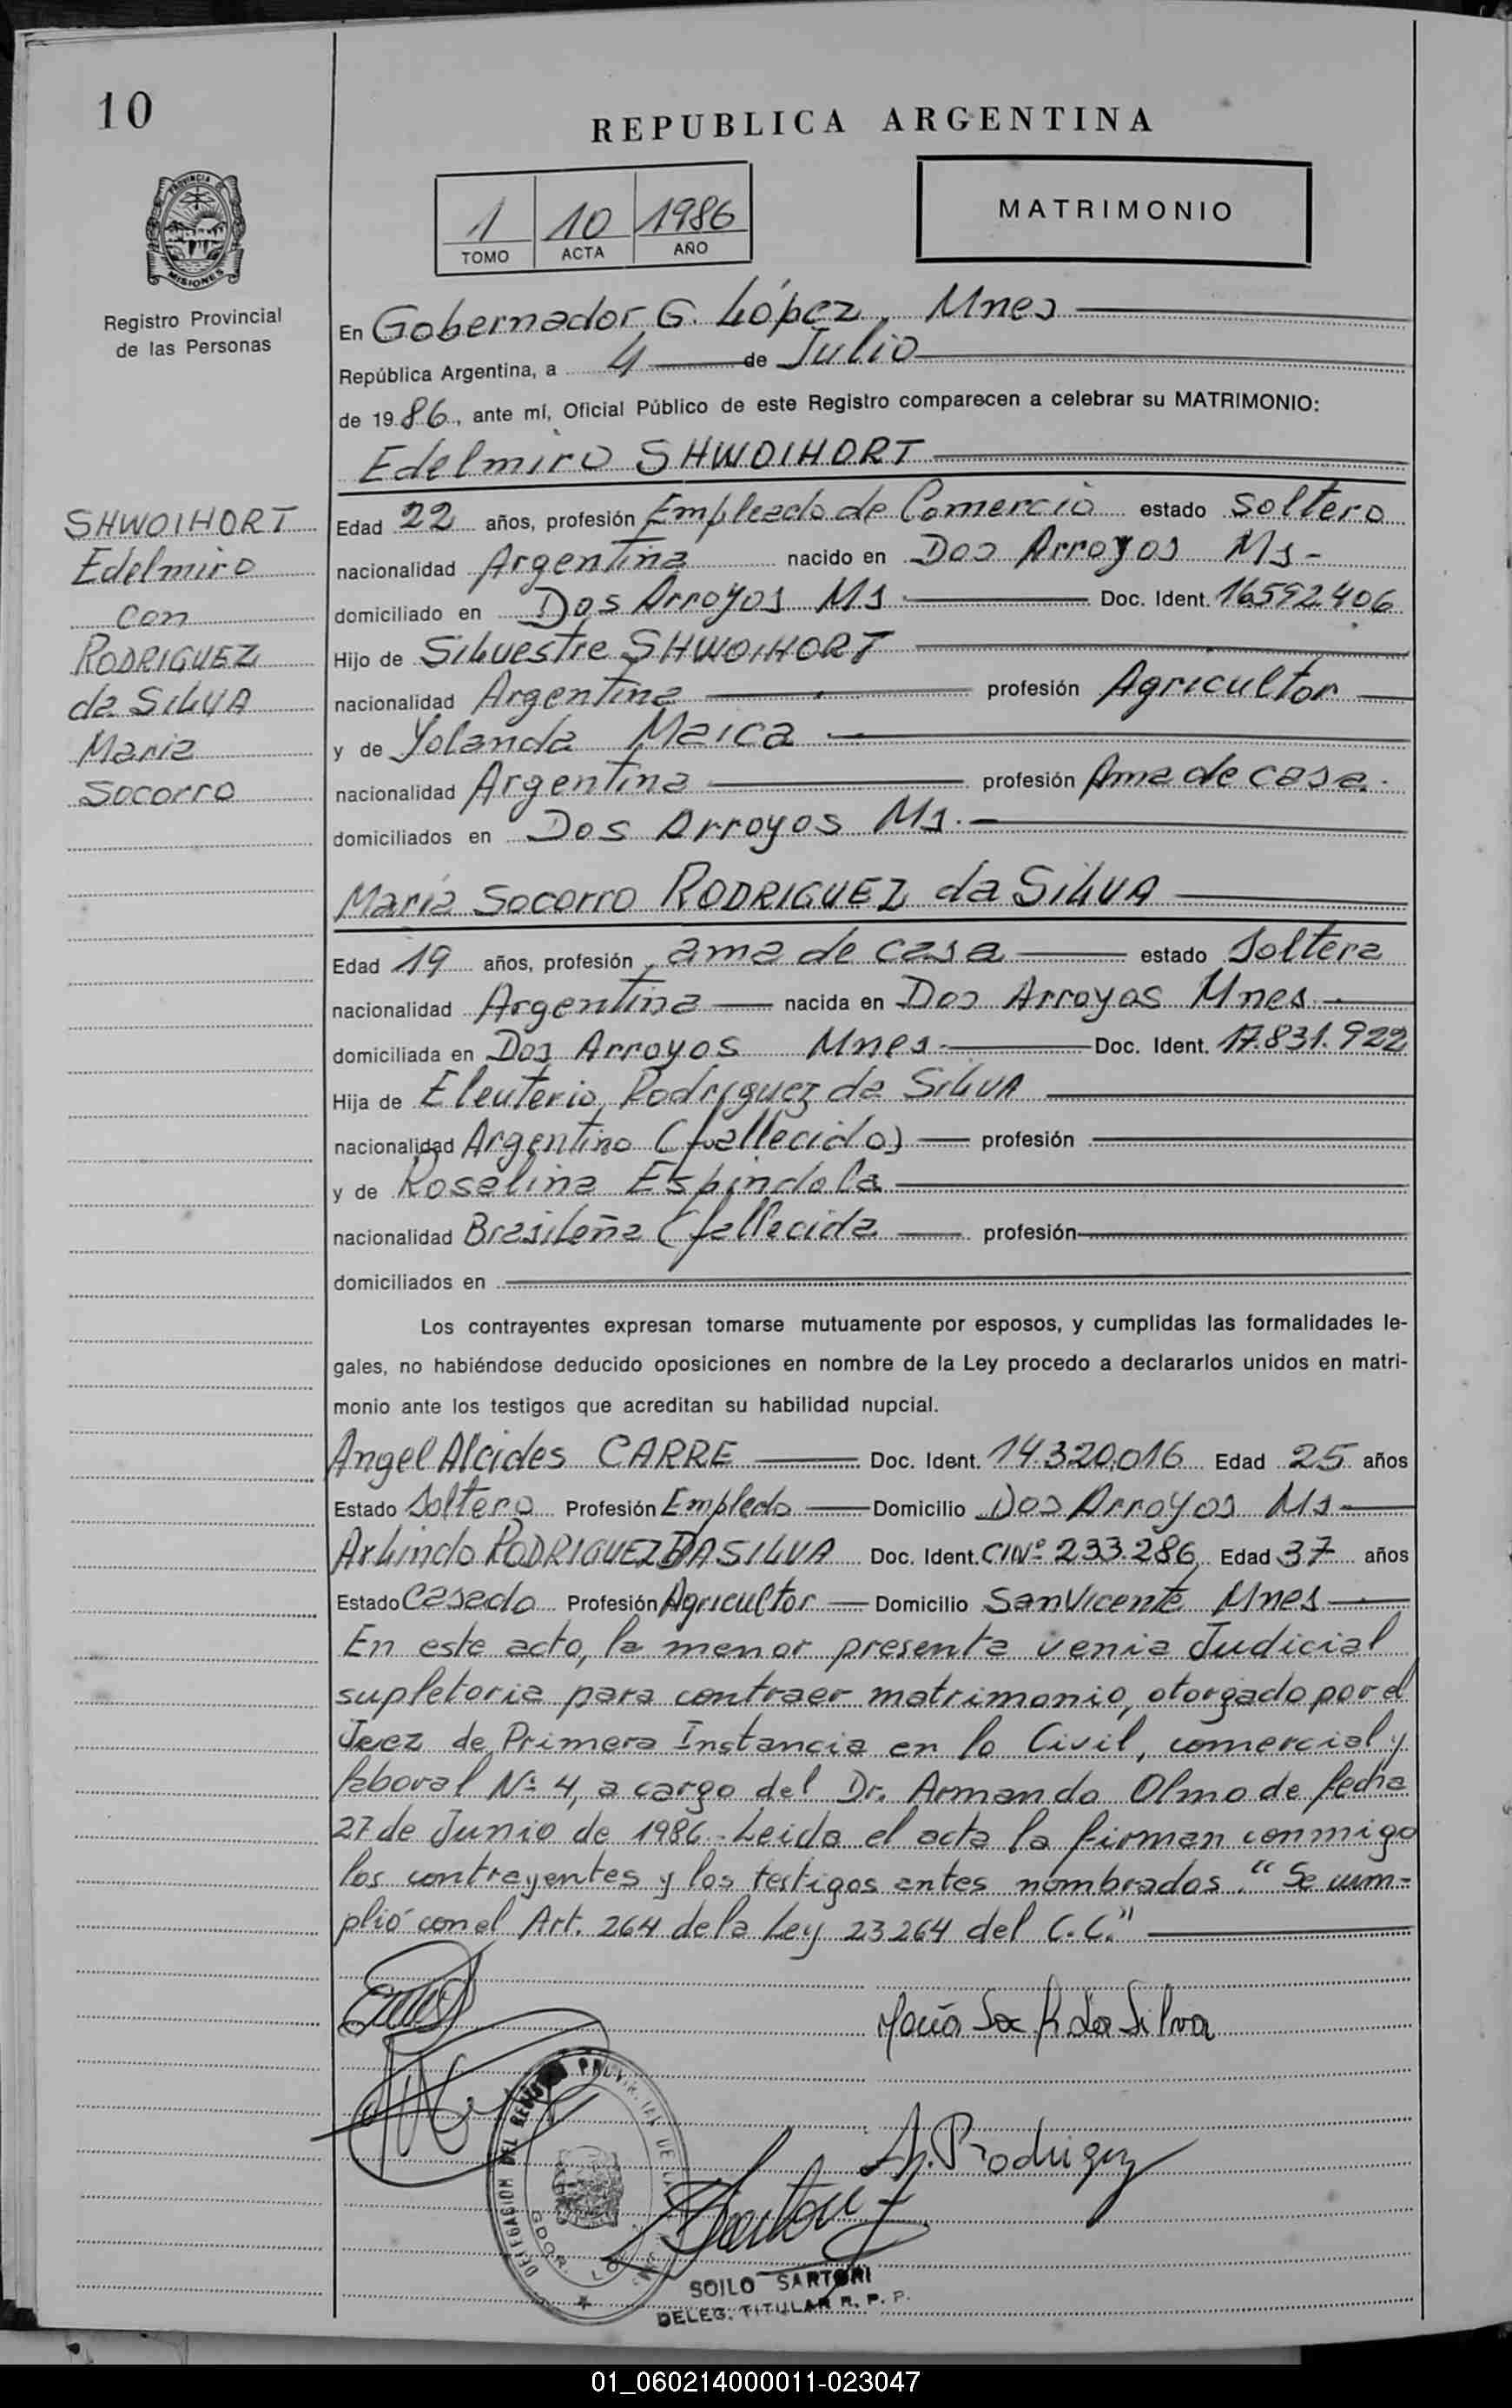 10
REPUBLICA ARGENTINA
PROVINCIA DE
MISIONES
Registro Provincial
de las Personas
1 10 1986
TOMO ACTA AÑO
MATRIMONIO
En Gobernador G. López, Mnes
República Argentina, a 4 de Julio
de 1986, ante mí, Oficial Público de este Registro comparecen a celebrar su MATRIMONIO:
Edelmiro SHWOIHORT
SHWOIHORT
Edelmiro
con
RODRIGUEZ
da SILVA
Maria
Socorro
Edad 22 años, profesión Empleado de Comercio estado Soltero
nacionalidad Argentina nacido en Dos Arroyos Ms-
domiciliado en Dos Arroyos Ms Doc. Ident. 16592406
Hijo de Silvestre SHWOIHORT
nacionalidad Argentina profesión Agricultor
y de Yolanda Maica
nacionalidad Argentina profesión Ama de casa.
domiciliados en Dos Arroyos Ms.
Maria Socorro RODRIGUEZ da SILVA
Edad 19 años, profesión ama de casa estado Soltera
nacionalidad Argentina nacida en Dos Arroyos Mnes
domiciliada en Dos Arroyos Mnes Doc. Ident. 17.831.922
Hija de Eleuterio Rodriguez da SILVA
nacionalidad Argentino (fallecido) profesión
y de Roselina Espindola
nacionalidad Brasileña (fallecida profesión
domiciliados en
Los contrayentes expresan tomarse mutuamente por esposos, y cumplidas las formalidades le-
gales, no habiéndose deducido oposiciones en nombre de la Ley procedo a declararlos unidos en matri-
monio ante los testigos que acreditan su habilidad nupcial.
Angel Alcides CARRE Doc. Ident. 14.320.016 Edad 25 años
Estado Soltero Profesión Empledo Domicilio Dos Arroyos Ms
Arlindo RODRIGUEZ DA SILVA Doc. Ident. CINº 233.286 Edad 37 años
Estado Casado Profesión Agricultor Domicilio San Vicente Mnes
En este acto, la menor presenta venia Judicial
supletoria para contraer matrimonio, otorgado por el
Juez de Primera Instancia en lo Civil, comercial y
laboral Nº 4, a cargo del Dr. Armando Olmo de fecha
27 de Junio de 1986. Leida el acta la firman conmigo
los contrayentes y los testigos antes nombrados. "Se cum-
plió con el Art. 264 de la Ley 23264 del C.C."
Maria Soc R da Silva
A. Rodriguez
DELEGACION DEL REGISTRO PROVINCIAL DE LAS
GDOR. LOPEZ
SOILO SARTORI
DELEG. TITULAR R. P. P.
01_060214000011-023047